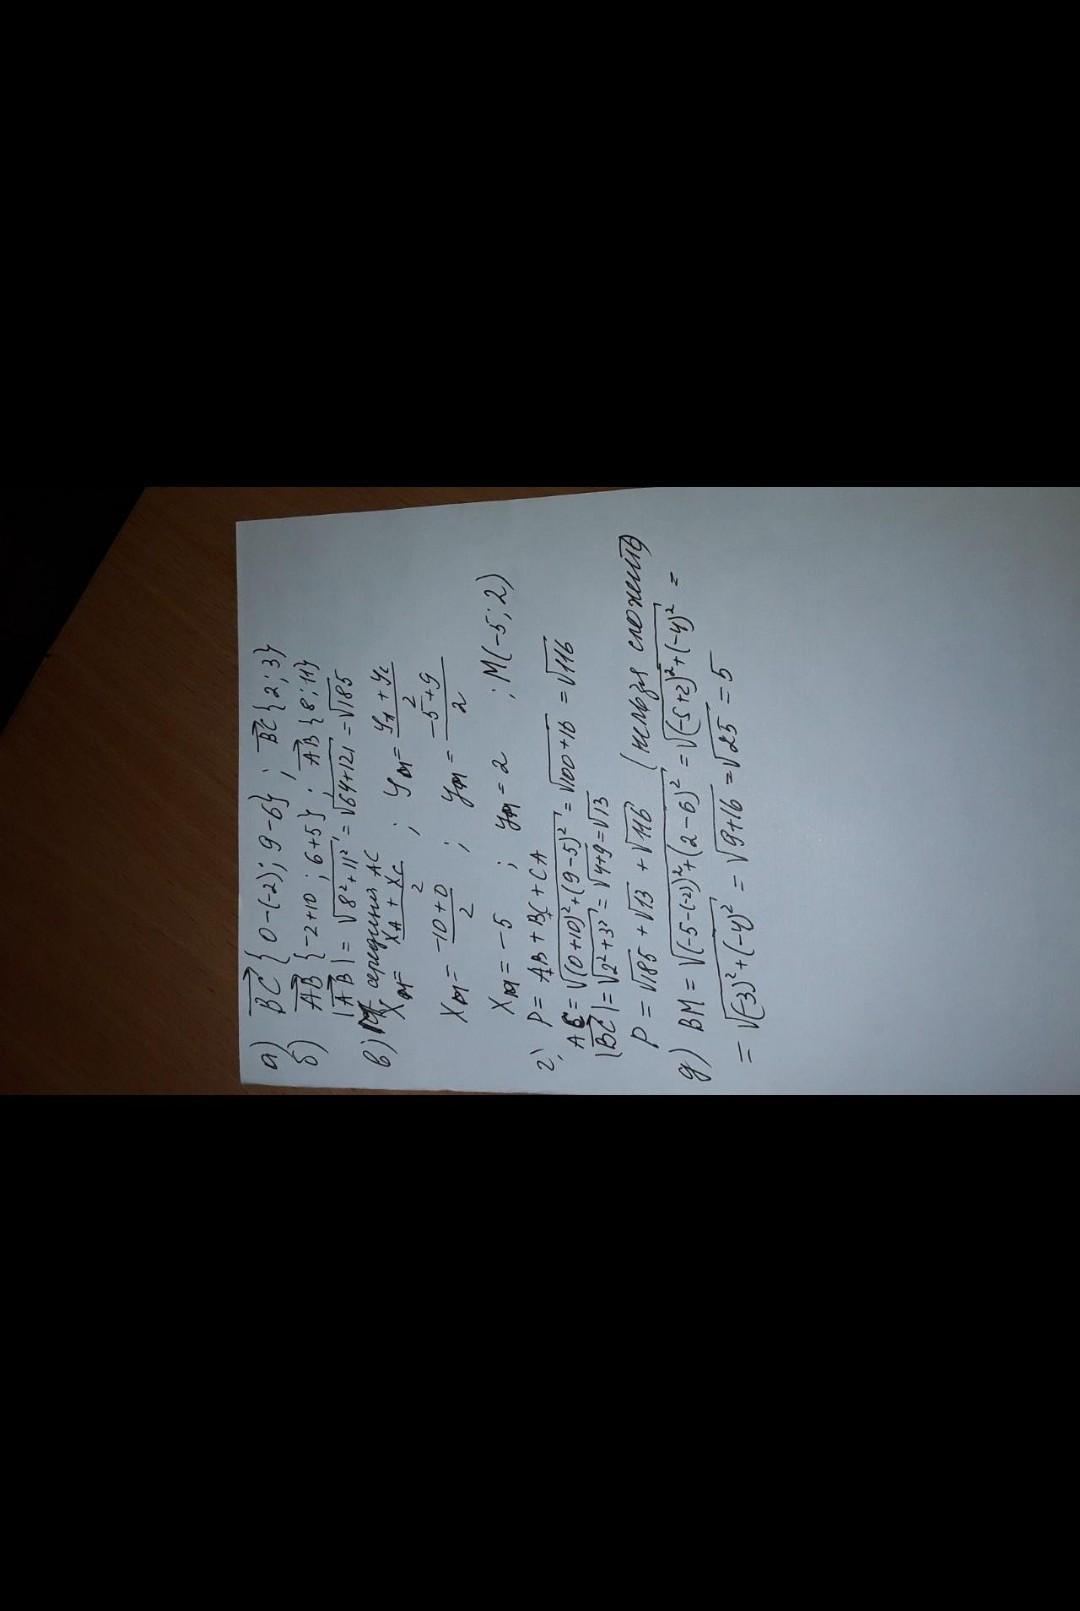 а) BC { 0-(-2); 9-6} ; BC { 2; 3}
б) AB {-2+10; 6+5} ; AB {8; 11}
|AB| = √8²+11² = √64+121 = √185
в) M середина AC
X_M = (X_A + X_C)/2 ; Y_M = (Y_A + Y_C)/2
X_M = (-10+0)/2 ; Y_M = (-5+9)/2
X_M = -5 ; Y_M = 2 ; M(-5; 2)
г) P = AB + BC + CA
AC = √(0+10)²+(9-5)² = √100+16 = √116
|BC| = √2²+3² = √4+9 = √13
P = √185 + √13 + √116 (нельзя сложить)
д) BM = √(-5-(-2))²+(2-6)² = √(-5+2)²+(-4)² =
= √(-3)²+(-4)² = √9+16 = √25 = 5